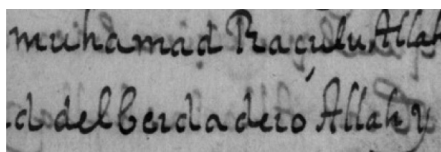 muhamad Raçulu Allah
d delberdadero Allah y